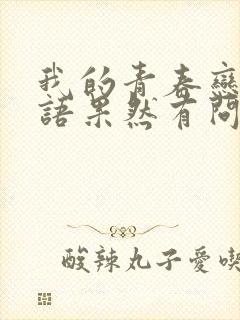 我的青春戀
語果然有問
酸辣丸子愛喫